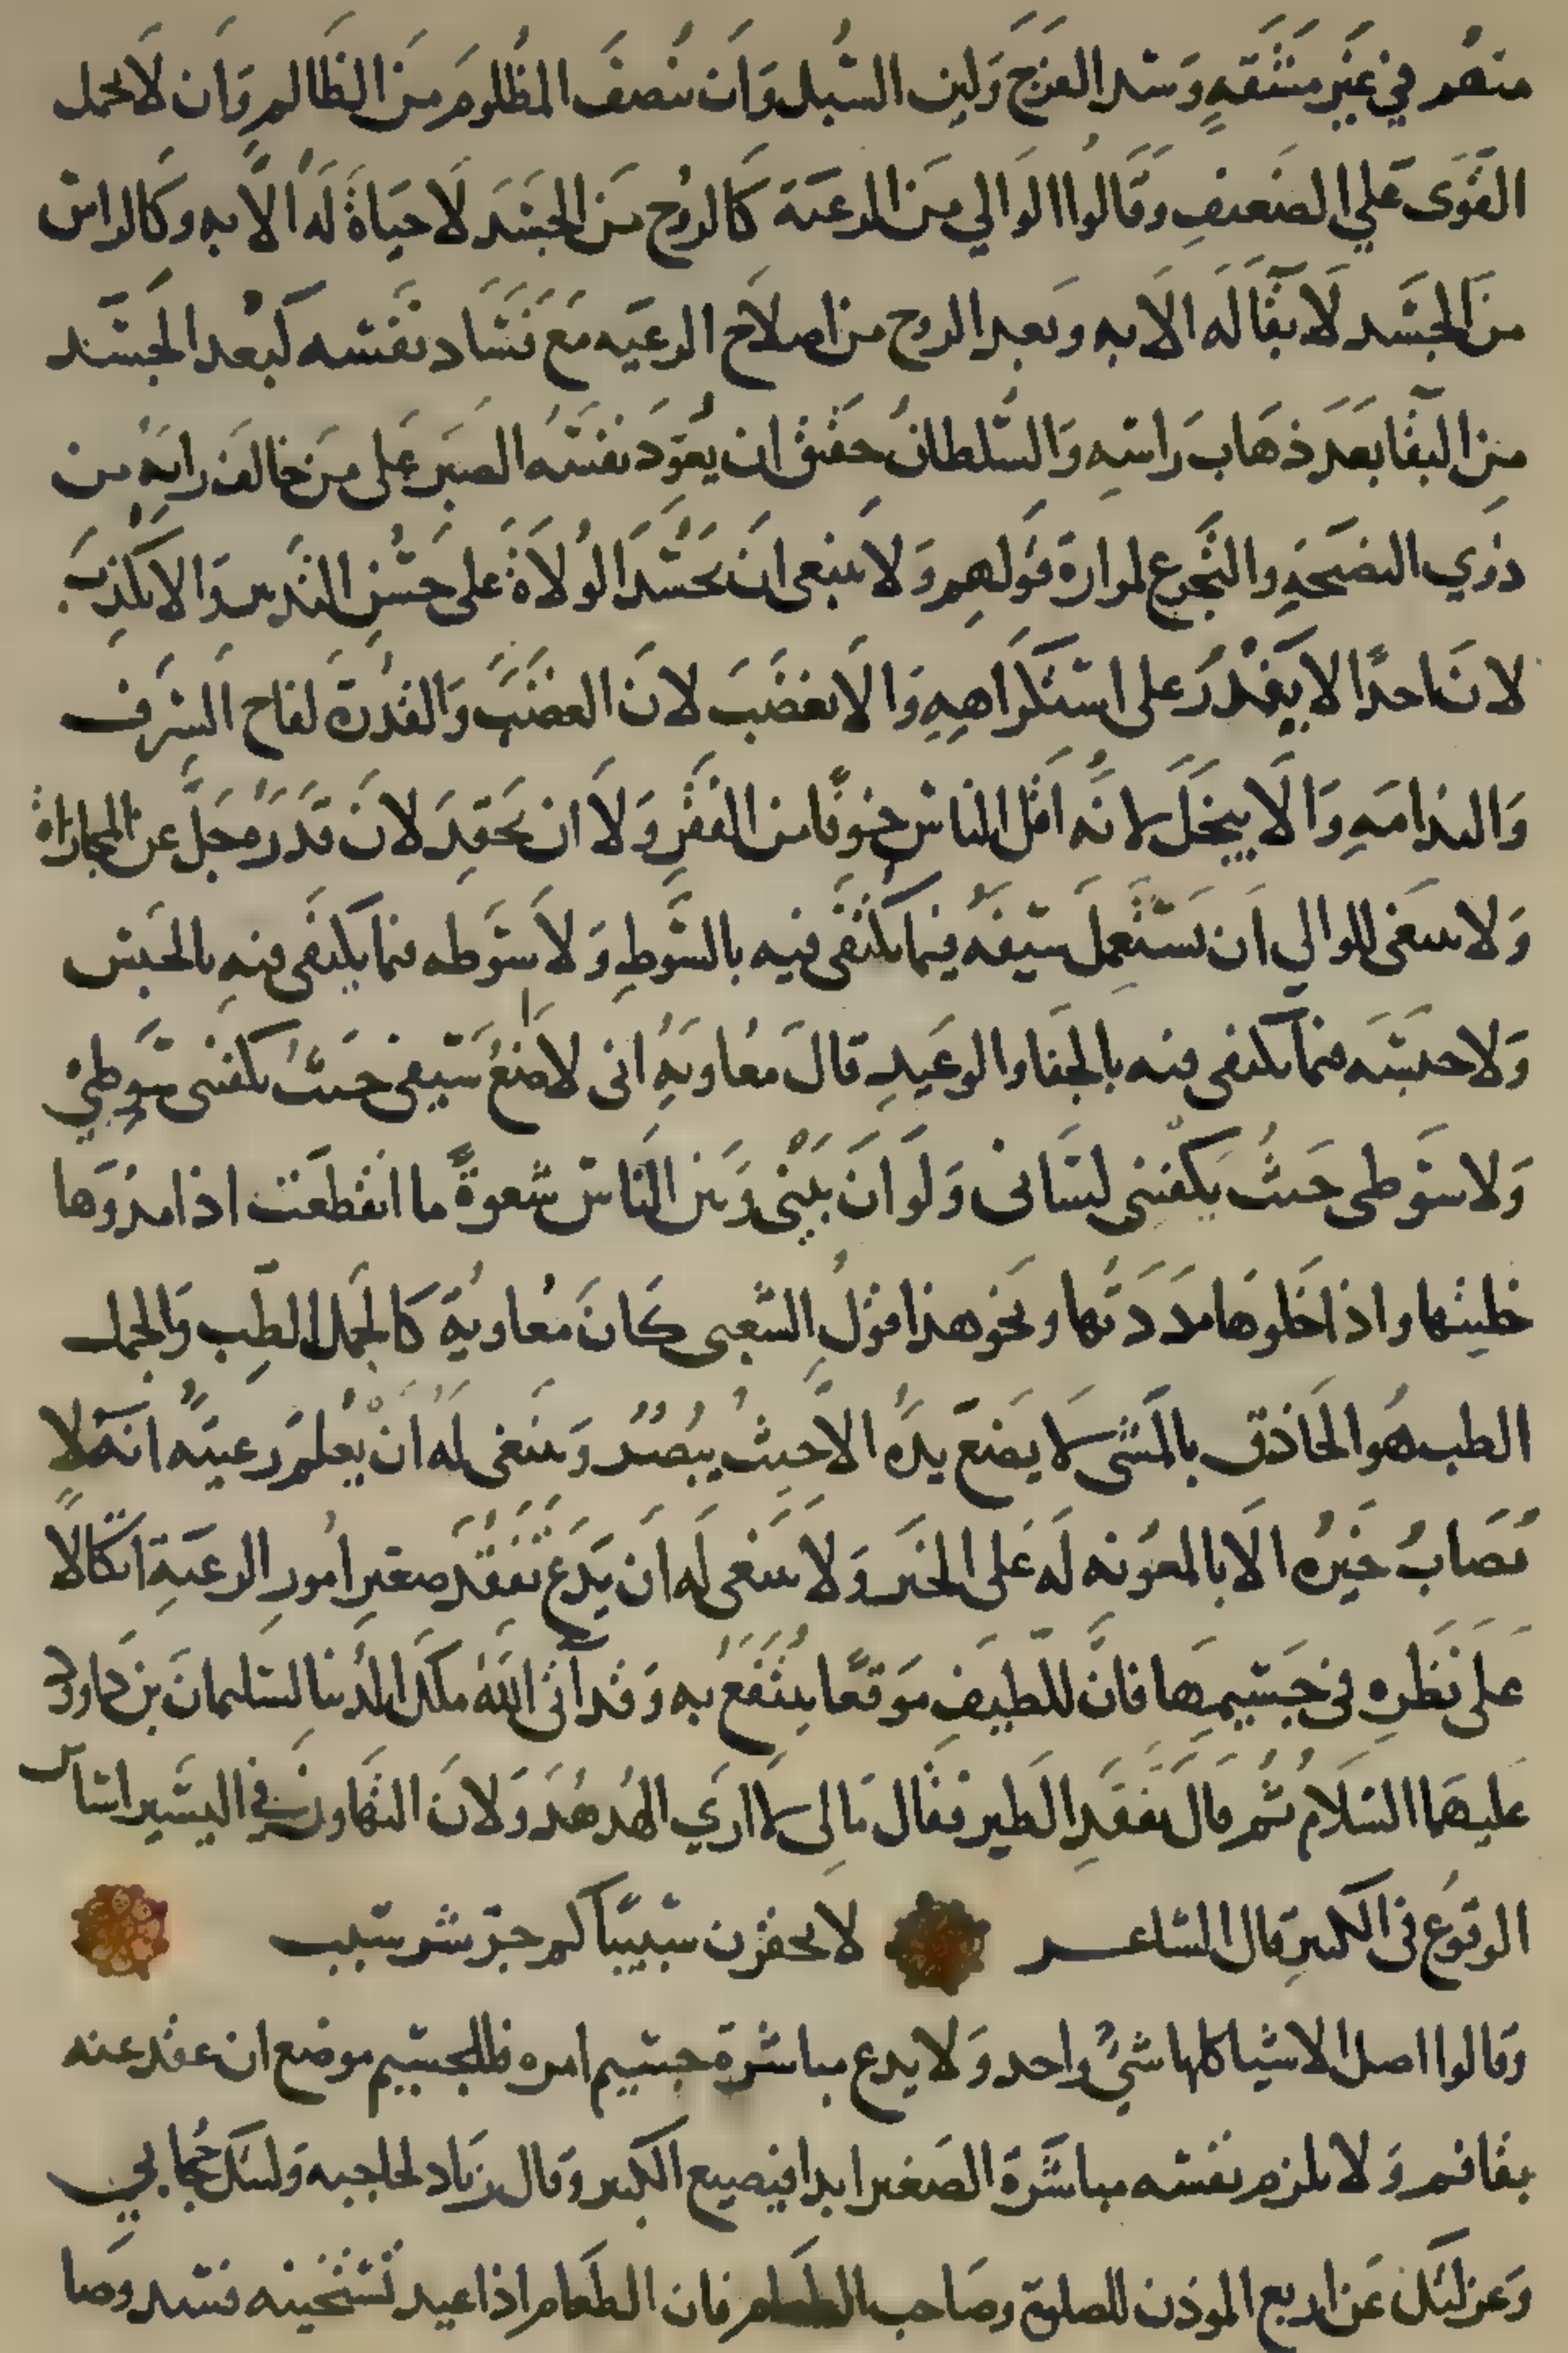 منهم في غير مشقةٍ وسد الفرج ولين السُبل وأن تنصف المظلوم من الظالم وأن لا يحمل
القوى علي الضعيف وقالوا الوالي من الرعية كالروح من الجسَد لا حياة له الا به وكالراس
من الجسَد لا بقا له الا به وبعد الروح من اصلاح الرعيه مع فساد نفسه كبعد الجسد
من البقا بعد ذهاب راسه والسلطان حقيق ان يعوّد نفسه الصبر على من خالف رايه من
ذوي النصيحة والتجرع لمرارة قولهم ولا ينبغى ان يحسد الولاة على حسن التدبير والا يكذب
لان احدًا لا يقدر على استكراهه والا يغضب لان الغضب والقدرة لقاح السرف
والندامه والا يبخل لانه اقل الناس خوفًا من الفقر ولا ان يحقد لان قدره جل عن المجازاة
ولا ينبغى للوالي ان يستعمل سيفه فيما يكتفى فيه بالسوط ولا سوطه فيما يكتفى فيه بالحبس
ولا حبسه فيما يكتفى فيه بالجفا والوعيد قال معاوية انى لا اضع سيفى حيث يكفينى سوطي
ولا سوطى حيث يكفينى لسانى ولو ان بينى وبين الناس شعرةً ما انقطعت اذا مدوها
خليتها واذا خلوها مددتها ونحو هذا قول الشعبى كان معاوية كالجمل الطب والجمل
الطب هو الحاذق بالمشى لا يضع يده الا حيث يبصر وينبغى له ان يُعلم رعيته انه لا
تصاب خيره الا بالمعونه له على الخير ولا ينبغى له ان يدع تفقد صغير امور الرعية اتكالًا
على نظره في جسيمها فان للطيف موقعًا ينتفع به وقد آتى الله ملك الدنيا لسليمان بن داود
عليهما السلام ثم قال تفقد الطير فقال مالى لا اري الهدهد ولان التهاون في اليسير اساس
الوقوع في الكبير قال الشاعر لا تحقرن سبيبًا كم جر شر سبيب
وقالوا اصل الاشيا كلها شيٌ واحد ولا يدع مباشرة جسيم امره فللجسيم موضع ان عقد عنه
بفاقم ولا يلزم نفسه مباشرة الصغير ابدا فيضيع الكبير وقال زياد لحاجبه وليتك حجابي
وعزلتك عن اربع الموذن للصلوة وصاحب الطعام فان الطعام اذا عيد تسخينه فسد وصا